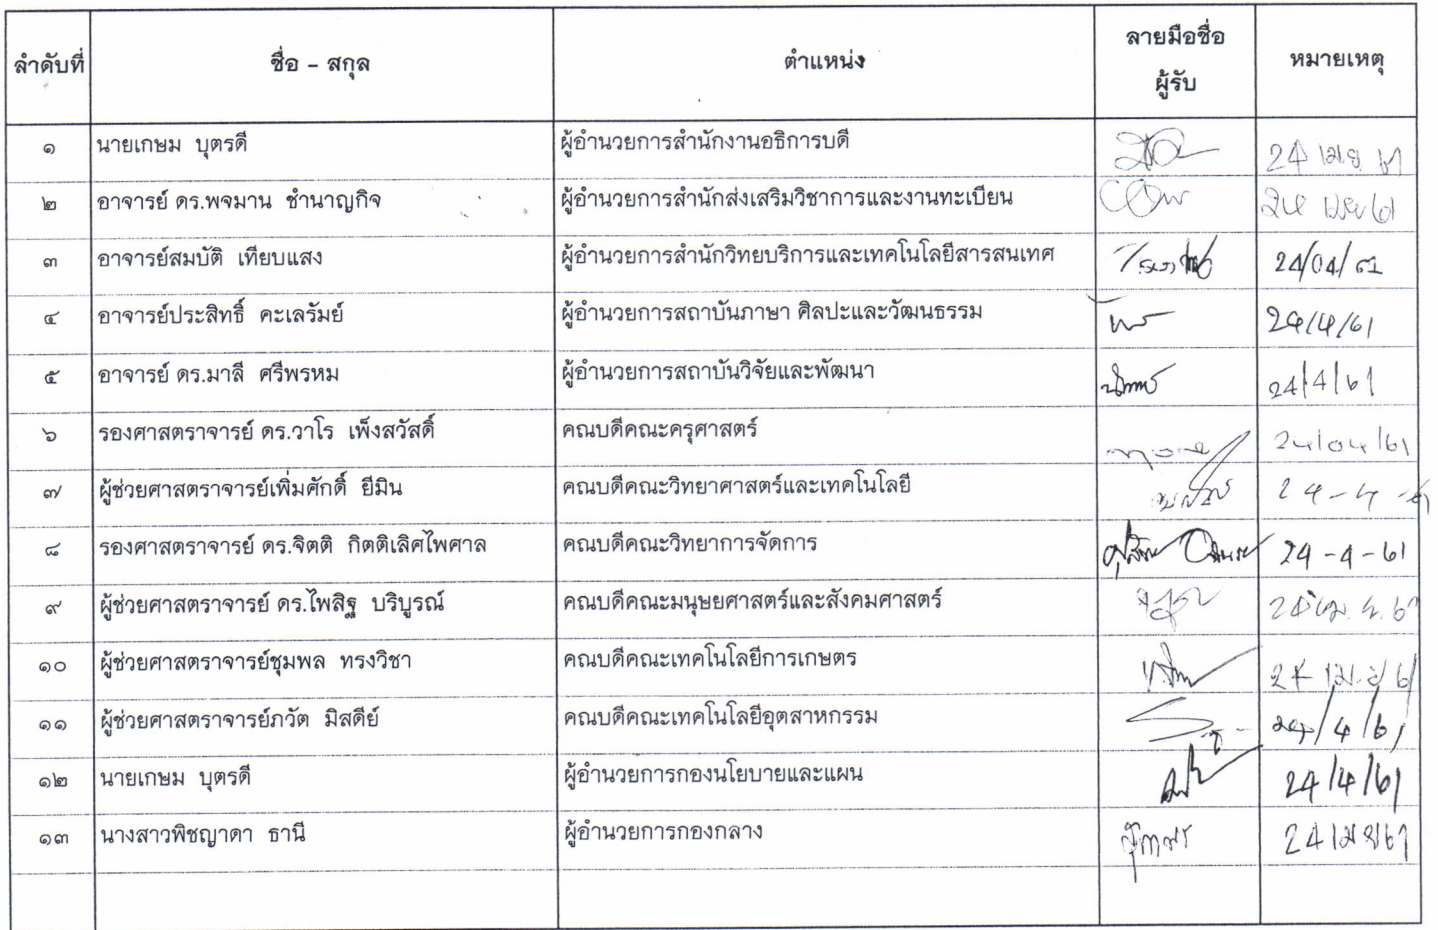 ลำดับที่ ชื่อ – สกุล ตำแหน่ง ลายมือชื่อ ผู้รับ หมายเหตุ
๑ นายเกษม บุตรดี ผู้อำนวยการสำนักงานอธิการบดี 24 เมย 61
๒ อาจารย์ ดร.พจมาน ชำนาญกิจ ผู้อำนวยการสำนักส่งเสริมวิชาการและงานทะเบียน
๓ อาจารย์สมบัติ เทียบแสง ผู้อำนวยการสำนักวิทยบริการและเทคโนโลยีสารสนเทศ 24/04/61
๔ อาจารย์ประสิทธิ์ คะเลรัมย์ ผู้อำนวยการสถาบันภาษา ศิลปะและวัฒนธรรม 24/4/61
๕ อาจารย์ ดร.มาลี ศรีพรหม ผู้อำนวยการสถาบันวิจัยและพัฒนา 24/4/61
๖ รองศาสตราจารย์ ดร.วาโร เพ็งสวัสดิ์ คณบดีคณะครุศาสตร์ 24/04/61
๗ ผู้ช่วยศาสตราจารย์เพิ่มศักดิ์ ยีมิน คณบดีคณะวิทยาศาสตร์และเทคโนโลยี 24-4-61
๘ รองศาสตราจารย์ ดร.จิตติ กิตติเลิศไพศาล คณบดีคณะวิทยาการจัดการ 24-4-61
๙ ผู้ช่วยศาสตราจารย์ ดร.ไพสิฐ บริบูรณ์ คณบดีคณะมนุษยศาสตร์และสังคมศาสตร์
๑๐ ผู้ช่วยศาสตราจารย์ชุมพล ทรงวิชา คณบดีคณะเทคโนโลยีการเกษตร
๑๑ ผู้ช่วยศาสตราจารย์ภวัต มิสดีย์ คณบดีคณะเทคโนโลยีอุตสาหกรรม 24/4/61
๑๒ นายเกษม บุตรดี ผู้อำนวยการกองนโยบายและแผน 24/4/61
๑๓ นางสาวพิชญาดา ธานี ผู้อำนวยการกองกลาง 24 เมย 61